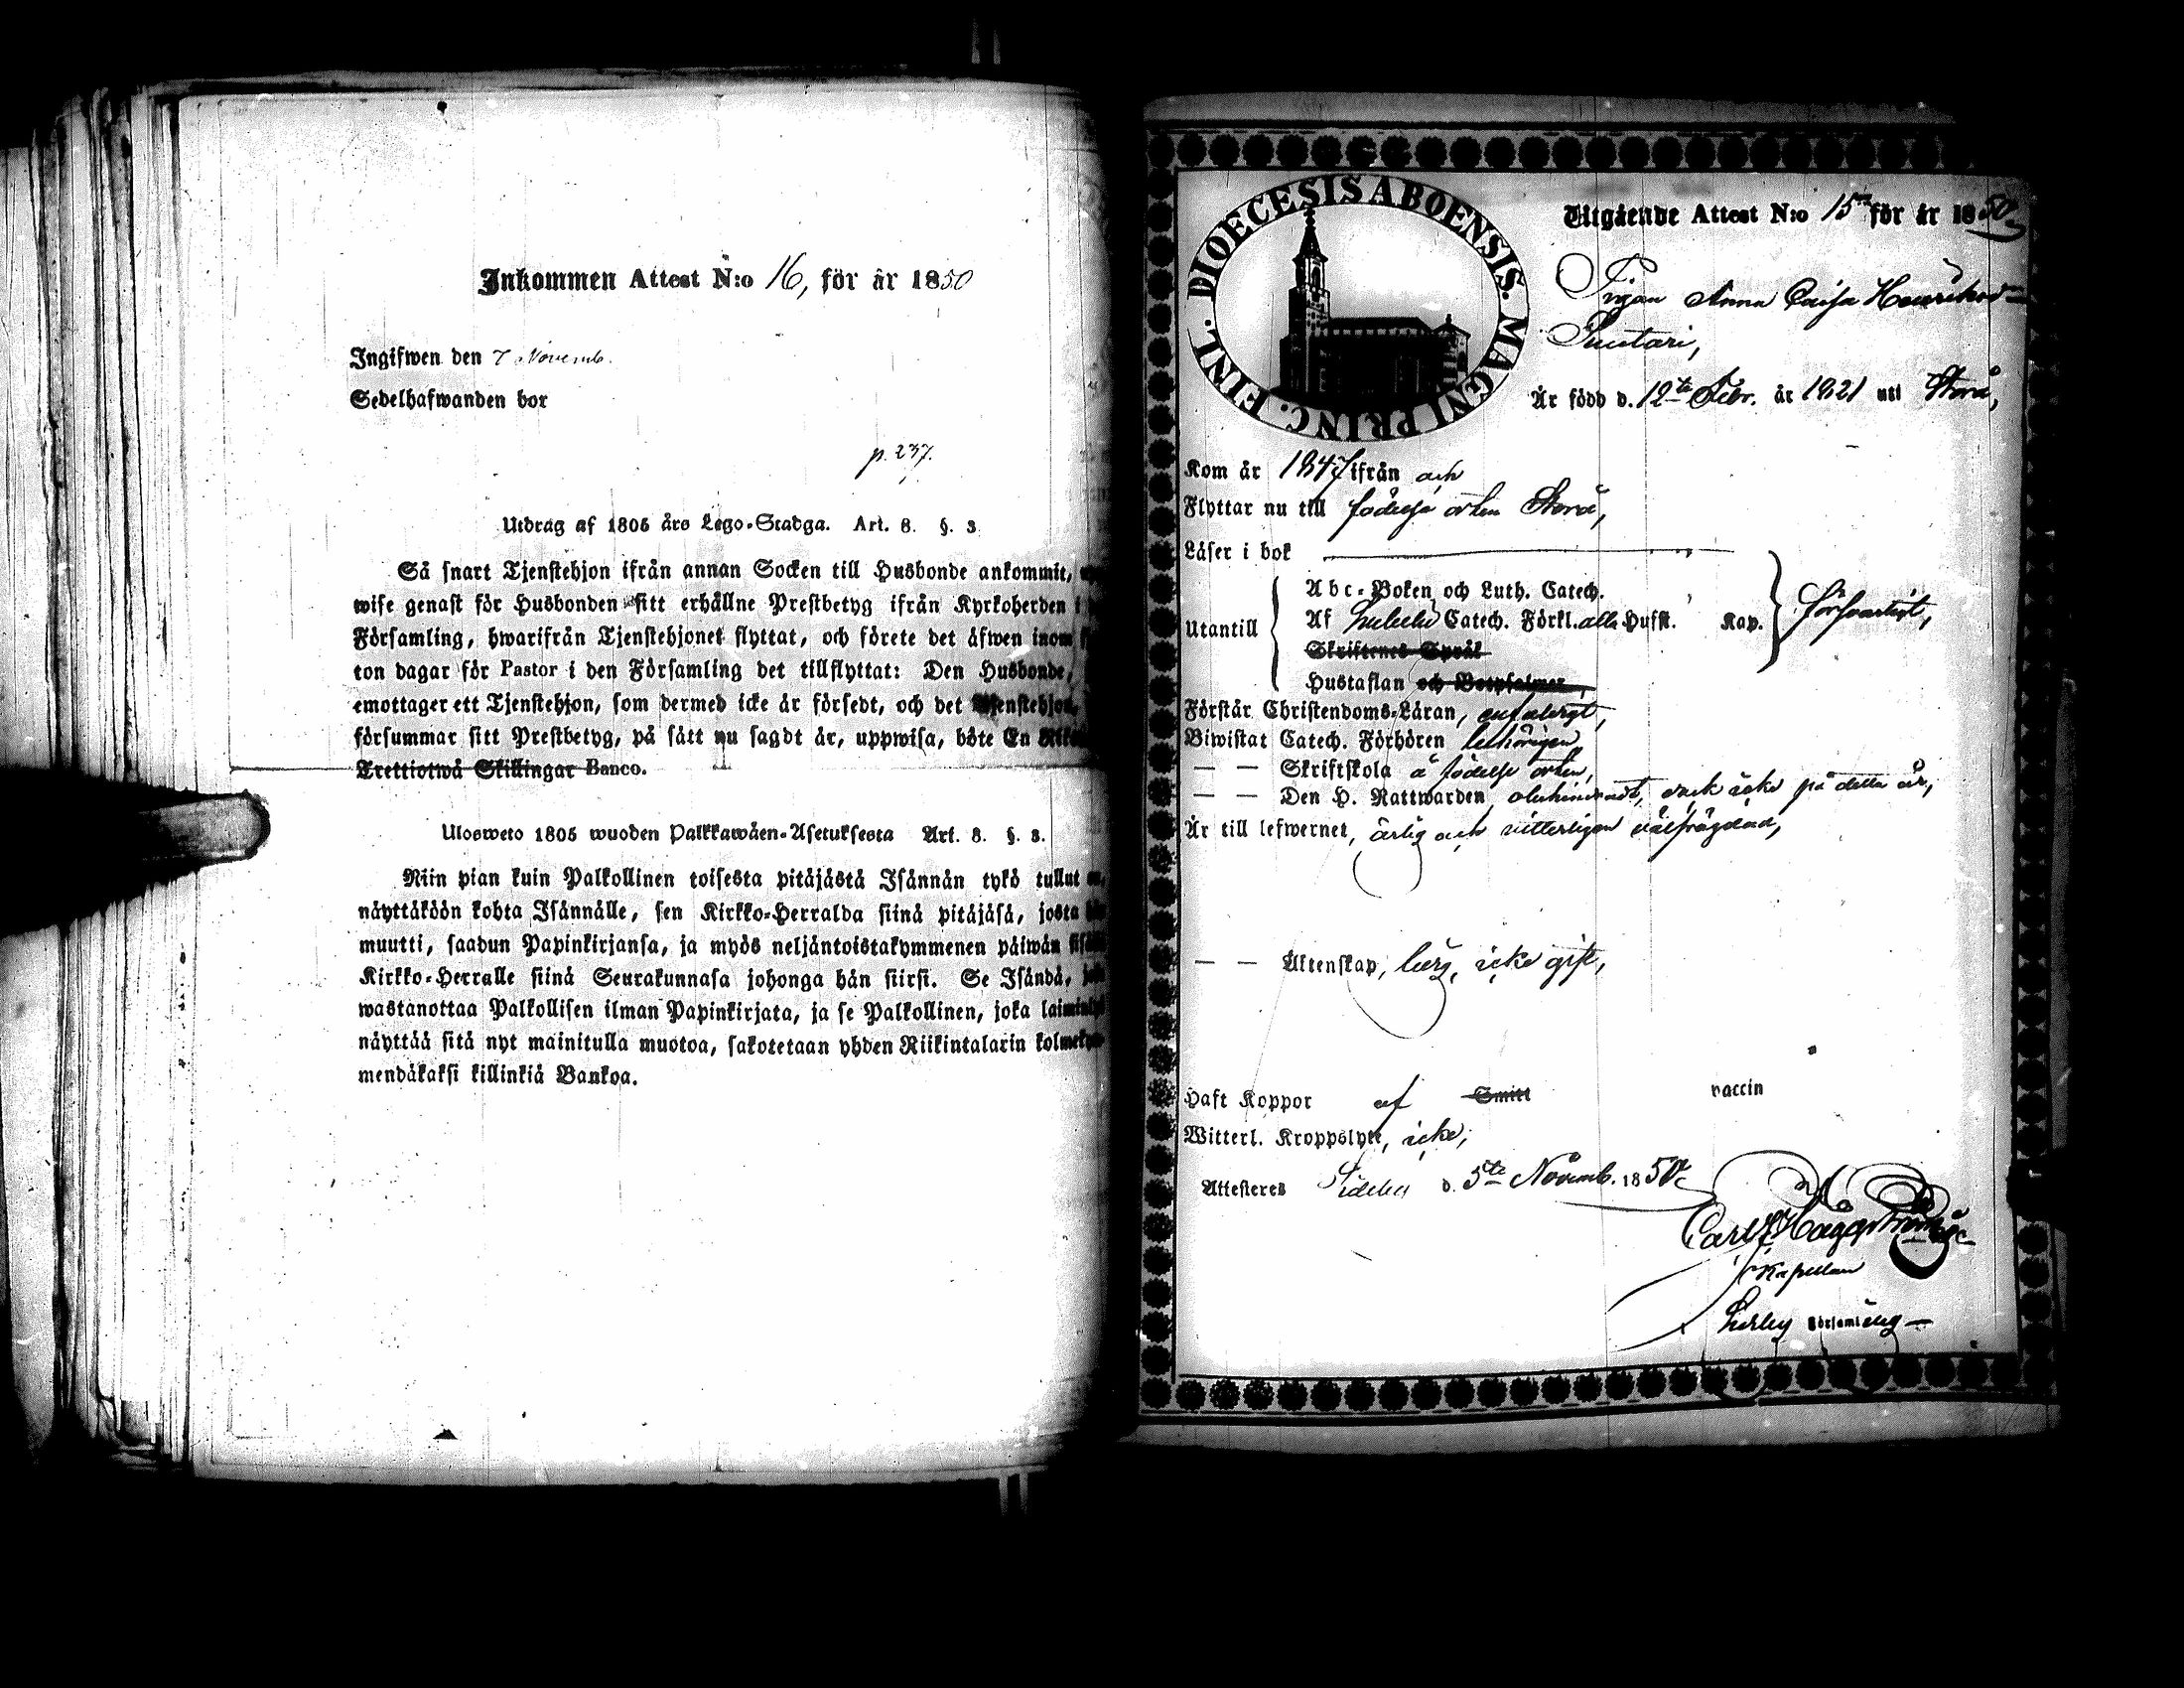 Inkommen Attest N:o 16, för år 1850
Ingifwen den 7 Novemb.
Sedelhafwanden bor
p. 237.
Utdrag af 1805 års Lego-Stadga. Art. 8. §. 3
Så snart Tjenstehjon ifrån annan Socken till Husbonde ankommit,
wise genast för Husbonden sitt erhållne Prestbetyg ifrån Kyrkoherden i
Församling, hwarifrån Tjenstehjonet flyttat, och förete det äfwen inom
ton dagar för Pastor i den Församling det tillflyttat: Den Husbonde,
emottager ett Tjenstehjon, som dermed icke är försedt, och det Tjenstehjon,
försummar sitt Prestbetyg, på sätt nu sagdt är, uppwisa, böte En
Trettiotwå Skillingar Banco.
Ulosweto 1805 wuoden Palkkawäen-Asetuksesta Art. 8. §. 3.
Niin pian kuin Palkollinen toisesta pitäjästä Isännän tykö tullut on,
näyttäköön kohta Isännälle, sen Kirkko-Herralda siinä pitäjäsä, josta hän
muutti, saadun Papinkirjansa, ja myös neljäntoistakymmenen päiwän
Kirkko-Herralle siinä Seurakunnasa johonga hän siirsi. Se Isändä,
wastanottaa Palkollisen ilman Papinkirjata, ja se Palkollinen, joka
näyttää sitä nyt mainitulla muotoa, sakotetaan yhden Riikintalarin
mendäkaksi killinkiä Bankoa.
DIOECESIS ABOENSIS. MAGNI PRINC. FINL.
Utgående Attest N:o 15 för år 1850
Pigan Anna Caisa Henriksd-
Suutari,
Är född d. 12te Febr. år 1821 uti Storå,
Kom år 1847 ifrån och
Flyttar nu till födelse orten Storå,
Läser i bok
Utantill
Abc-Boken och Luth. Catech.
Af Catech. Förkl. alla Hufst. Kap. försvarligt,
Skriftenes Språk
Hustaflan och Botpsalmer,
Förstår Christendoms-Läran,
Biwistat Catech. Förhören behörigen
— — Skriftskola å födelse orten,
— — Den H. Nattwarden, obehindradt, dock icke på detta år,
Är till lefwernet, ärlig och vitterligen välfrägdad,
— — Äktenskap, ledig, icke gift,
Haft Koppor af Smitt vaccin
Witterl. Kroppslyte, icke,
Attesteres Sideby d. 5te Novemb. 1850
Carl Häggström
Kapellan
Församling